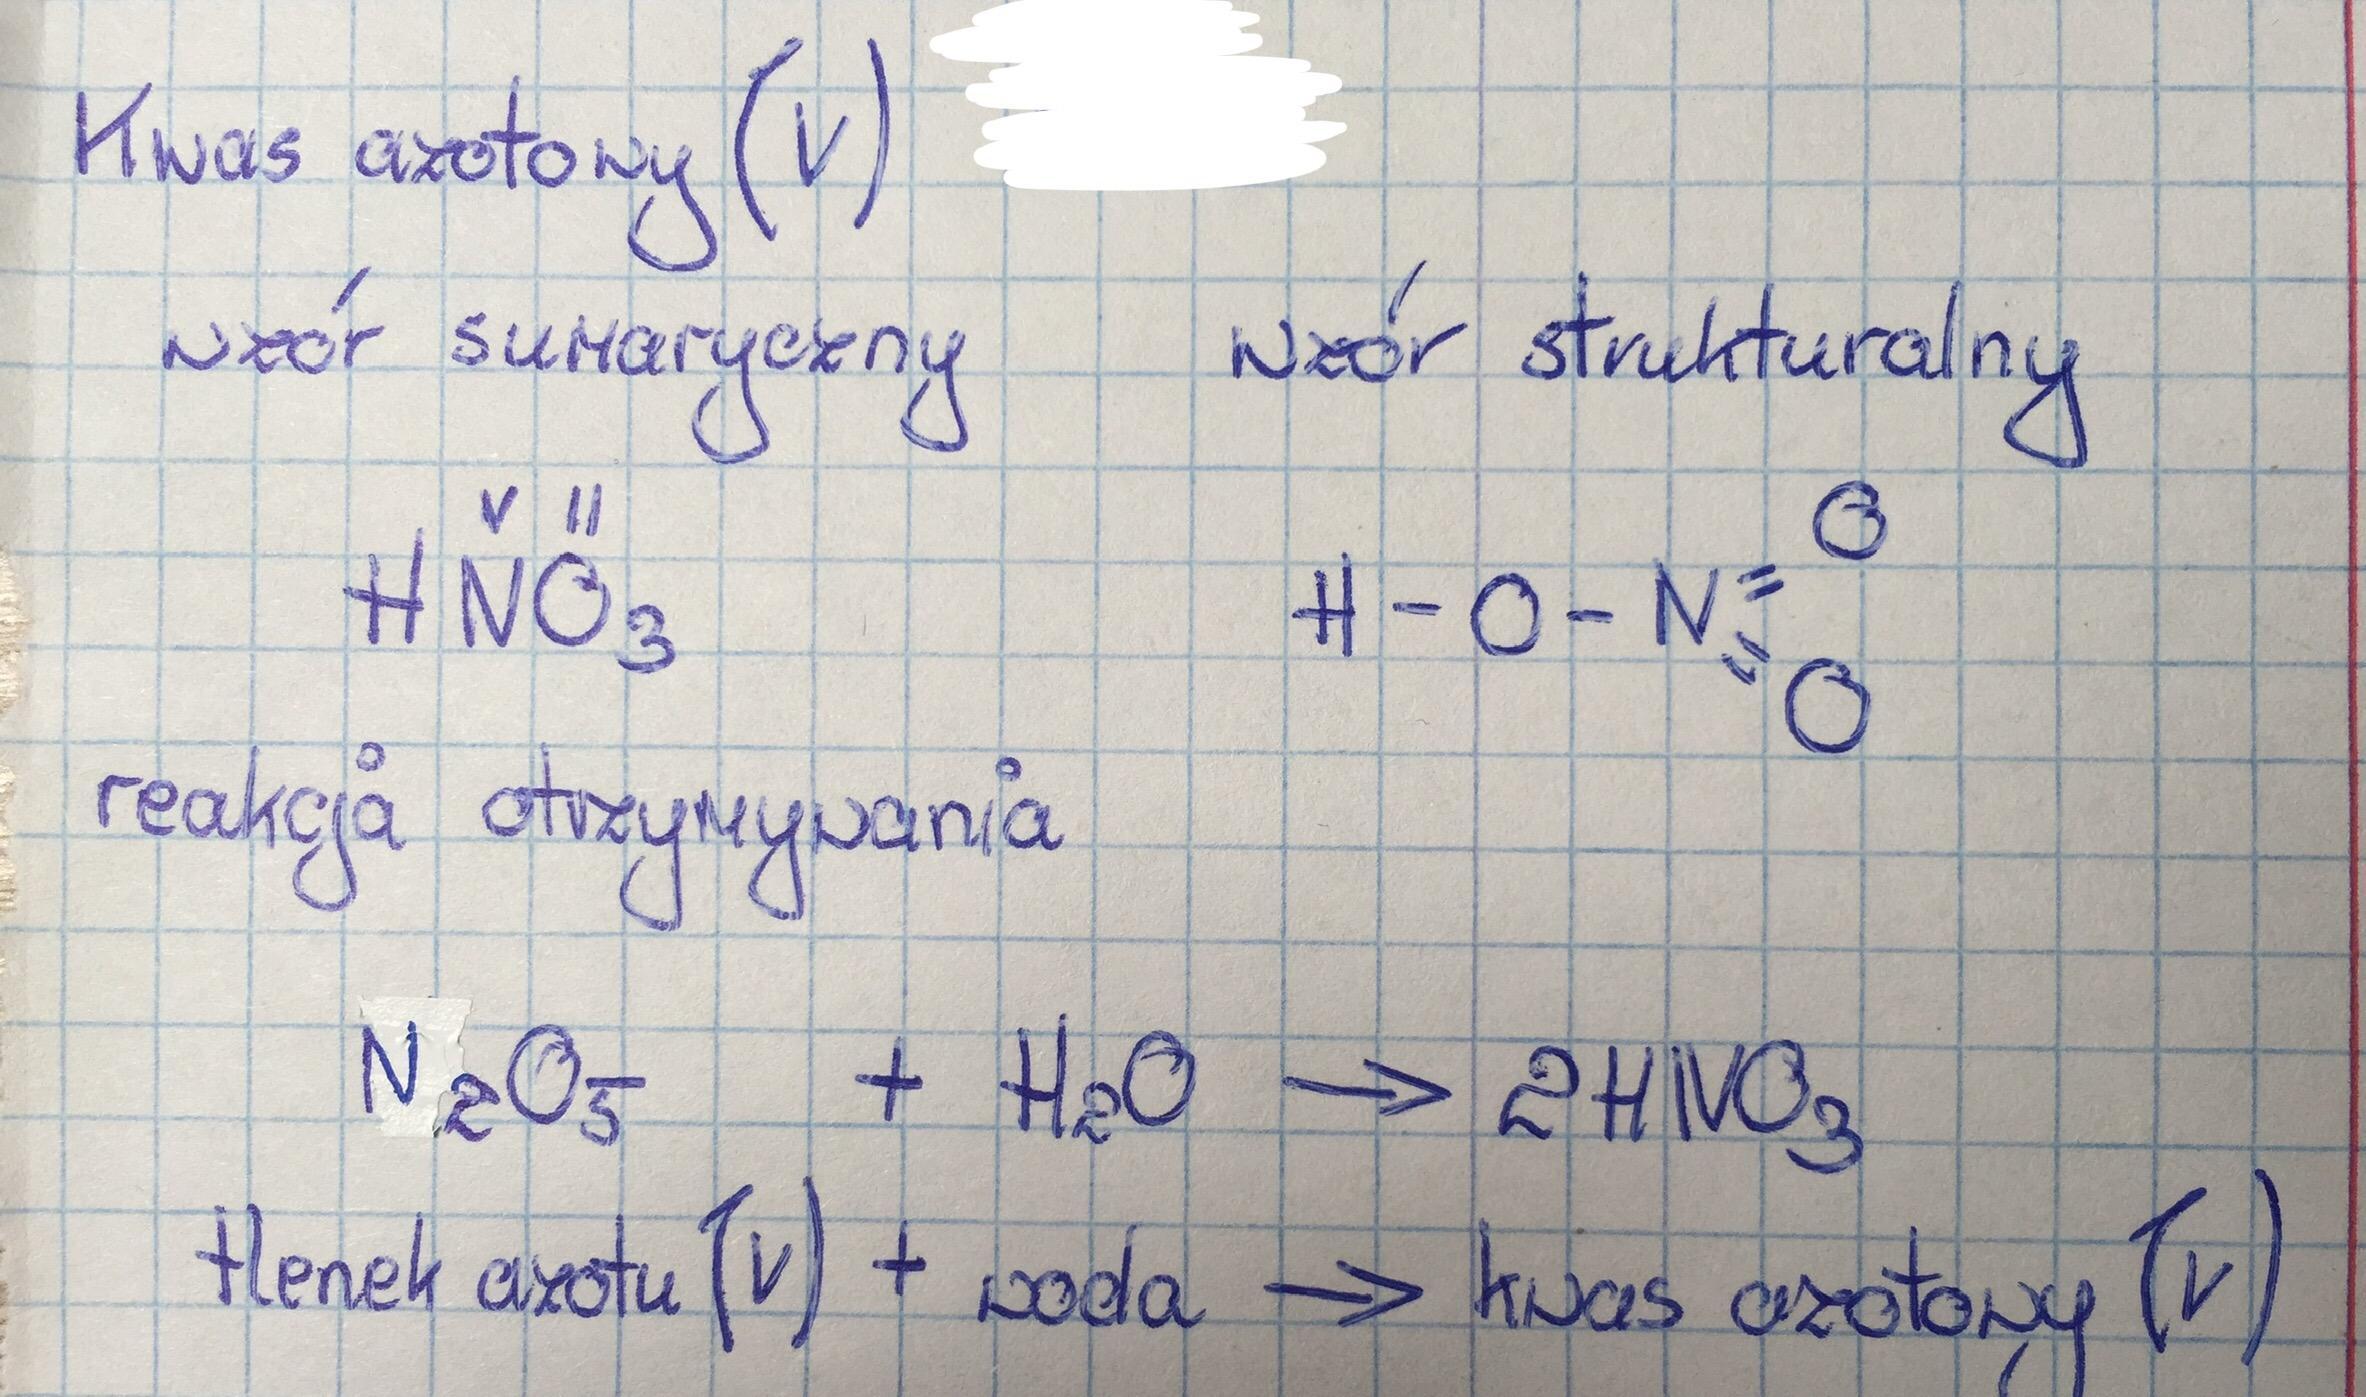 Kwas azotowy (V)
wzór sumaryczny wzór strukturalny
V II
O
HNO₃ H - O - N
=
=
O
reakcja otrzymywania
N₂O₅ + H₂O → 2HNO₃
tlenek azotu (V) + woda → kwas azotowy (V)